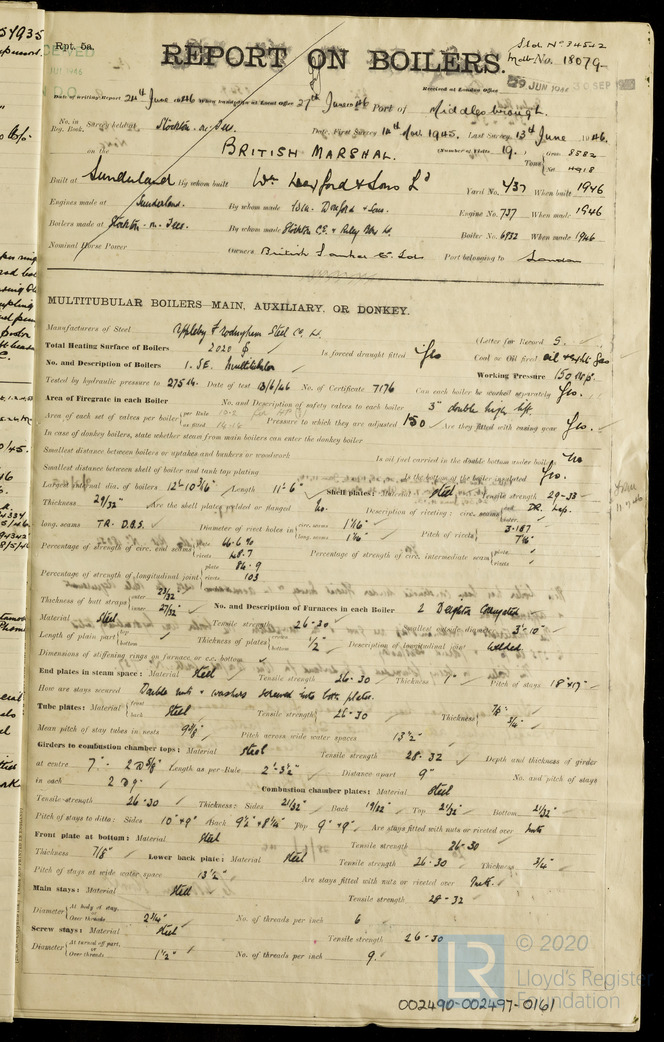 Rpt. 5a.
REPORT ON BOILERS.
Sld. No 34542
Mbro No. 18079
Received at London Office 29 JUN 1946
Date of writing Report 24th June 1946 When handed in at Local Office 27th June 1946 Port of Middlesbrough.
No. in Reg. Book. Survey held at Stockton-on-Tees. Date, First Survey 14th Nov. 1945. Last Survey 13th June 1946.
on the BRITISH MARSHAL. (Number of Visits 19.) Tons Gross 8582
Net 4918
Built at Sunderland By whom built Wm Doxford & Sons Ld Yard No. 737 When built 1946
Engines made at Sunderland. By whom made Wm. Doxford & Sons. Engine No. 737 When made 1946
Boilers made at Stockton-on-Tees. By whom made Stockton C.E. & Riley Blrs Ld. Boiler No. 6932 When made 1946
Nominal Horse Power Owners British Tanker C. Ld. Port belonging to London
MULTITUBULAR BOILERS—MAIN, AUXILIARY, OR DONKEY.
Manufacturers of Steel Appleby Frodingham Steel Co. Ld. (Letter for Record S.
Total Heating Surface of Boilers 2020 Is forced draught fitted Yes Coal or Oil fired oil & exht. Gas
No. and Description of Boilers 1. SE. Multitubular Working Pressure 150
Tested by hydraulic pressure to 275 Date of test 13/6/46 No. of Certificate 7176 Can each boiler be worked separately Yes.
Area of Firegrate in each Boiler No. and Description of safety valves to each boiler 3" double high lift
Area of each set of valves per boiler per Rule as fitted Pressure to which they are adjusted 150 Are they fitted with easing gear Yes.
In case of donkey boilers, state whether steam from main boilers can enter the donkey boiler
Smallest distance between boilers or uptakes and bunkers or woodwork Is oil fuel carried in the double bottom under boilers No
Smallest distance between shell of boiler and tank top plating Is the bottom of the boiler insulated Yes.
Largest internal dia. of boilers 12'-10 3/16" Length 11'-6" Shell plates: Material steel Tensile strength 29-33
Thickness 29/32" Are the shell plates welded or flanged No. Description of riveting: circ. seams end DR. Lap.
long. seams T.R. D.B.S. Diameter of rivet holes in circ. seams 1 1/16" long. seams 1 1/16" Pitch of rivets 3.187
7 1/8"
Percentage of strength of circ. end seams plate 66.6% rivets 48.7 Percentage of strength of circ. intermediate seam plate rivets
Percentage of strength of longitudinal joint plate 84.9 rivets 103
Thickness of butt straps outer 23/32" inner 27/32" No. and Description of Furnaces in each Boiler 2 Deighton Corrugated
Material Steel Tensile strength 26-30 Smallest outside diameter 3'-10"
Length of plain part top bottom Thickness of plates 1/2" Description of longitudinal joint welded
Dimensions of stiffening rings on furnace or c.c. bottom
End plates in steam space: Material steel Tensile strength 26-30 Thickness 1" Pitch of stays 18"x17"
How are stays secured Double nuts & washers screwed into both plates.
Tube plates: Material front back Steel Tensile strength 26-30 Thickness 7/8" 3/4"
Mean pitch of stay tubes in nests 9 3/8" Pitch across wide water spaces 13 1/2"
Girders to combustion chamber tops: Material steel Tensile strength 28-32 Depth and thickness of girder
at centre 7" 2 @ 5/8" Length as per Rule 2'-3 1/2" Distance apart 9" No. and pitch of stays
in each 2 @ 9" Combustion chamber plates: Material Steel
Tensile strength 26-30 Thickness: Sides 21/32" Back 19/32" Top 21/32" Bottom 21/32"
Pitch of stays to ditto: Sides 10"x9" Back 9 1/2"x8 1/4" Top 9"x9" Are stays fitted with nuts or riveted over Nuts
Front plate at bottom: Material Steel Tensile strength 26-30
Thickness 7/8" Lower back plate: Material Steel Tensile strength 26-30 Thickness 3/4"
Pitch of stays at wide water space 13 1/2" Are stays fitted with nuts or riveted over Nuts.
Main stays: Material Steel Tensile strength 28-32
Diameter At body of stay, or Over threads 2 3/4" No. of threads per inch 6
Screw stays: Material Steel Tensile strength 26-30
Diameter At turned off part, or Over threads 1 1/2" No. of threads per inch 9.
© 2020
LR
Lloyd's Register
Foundation
002490-002497-0161